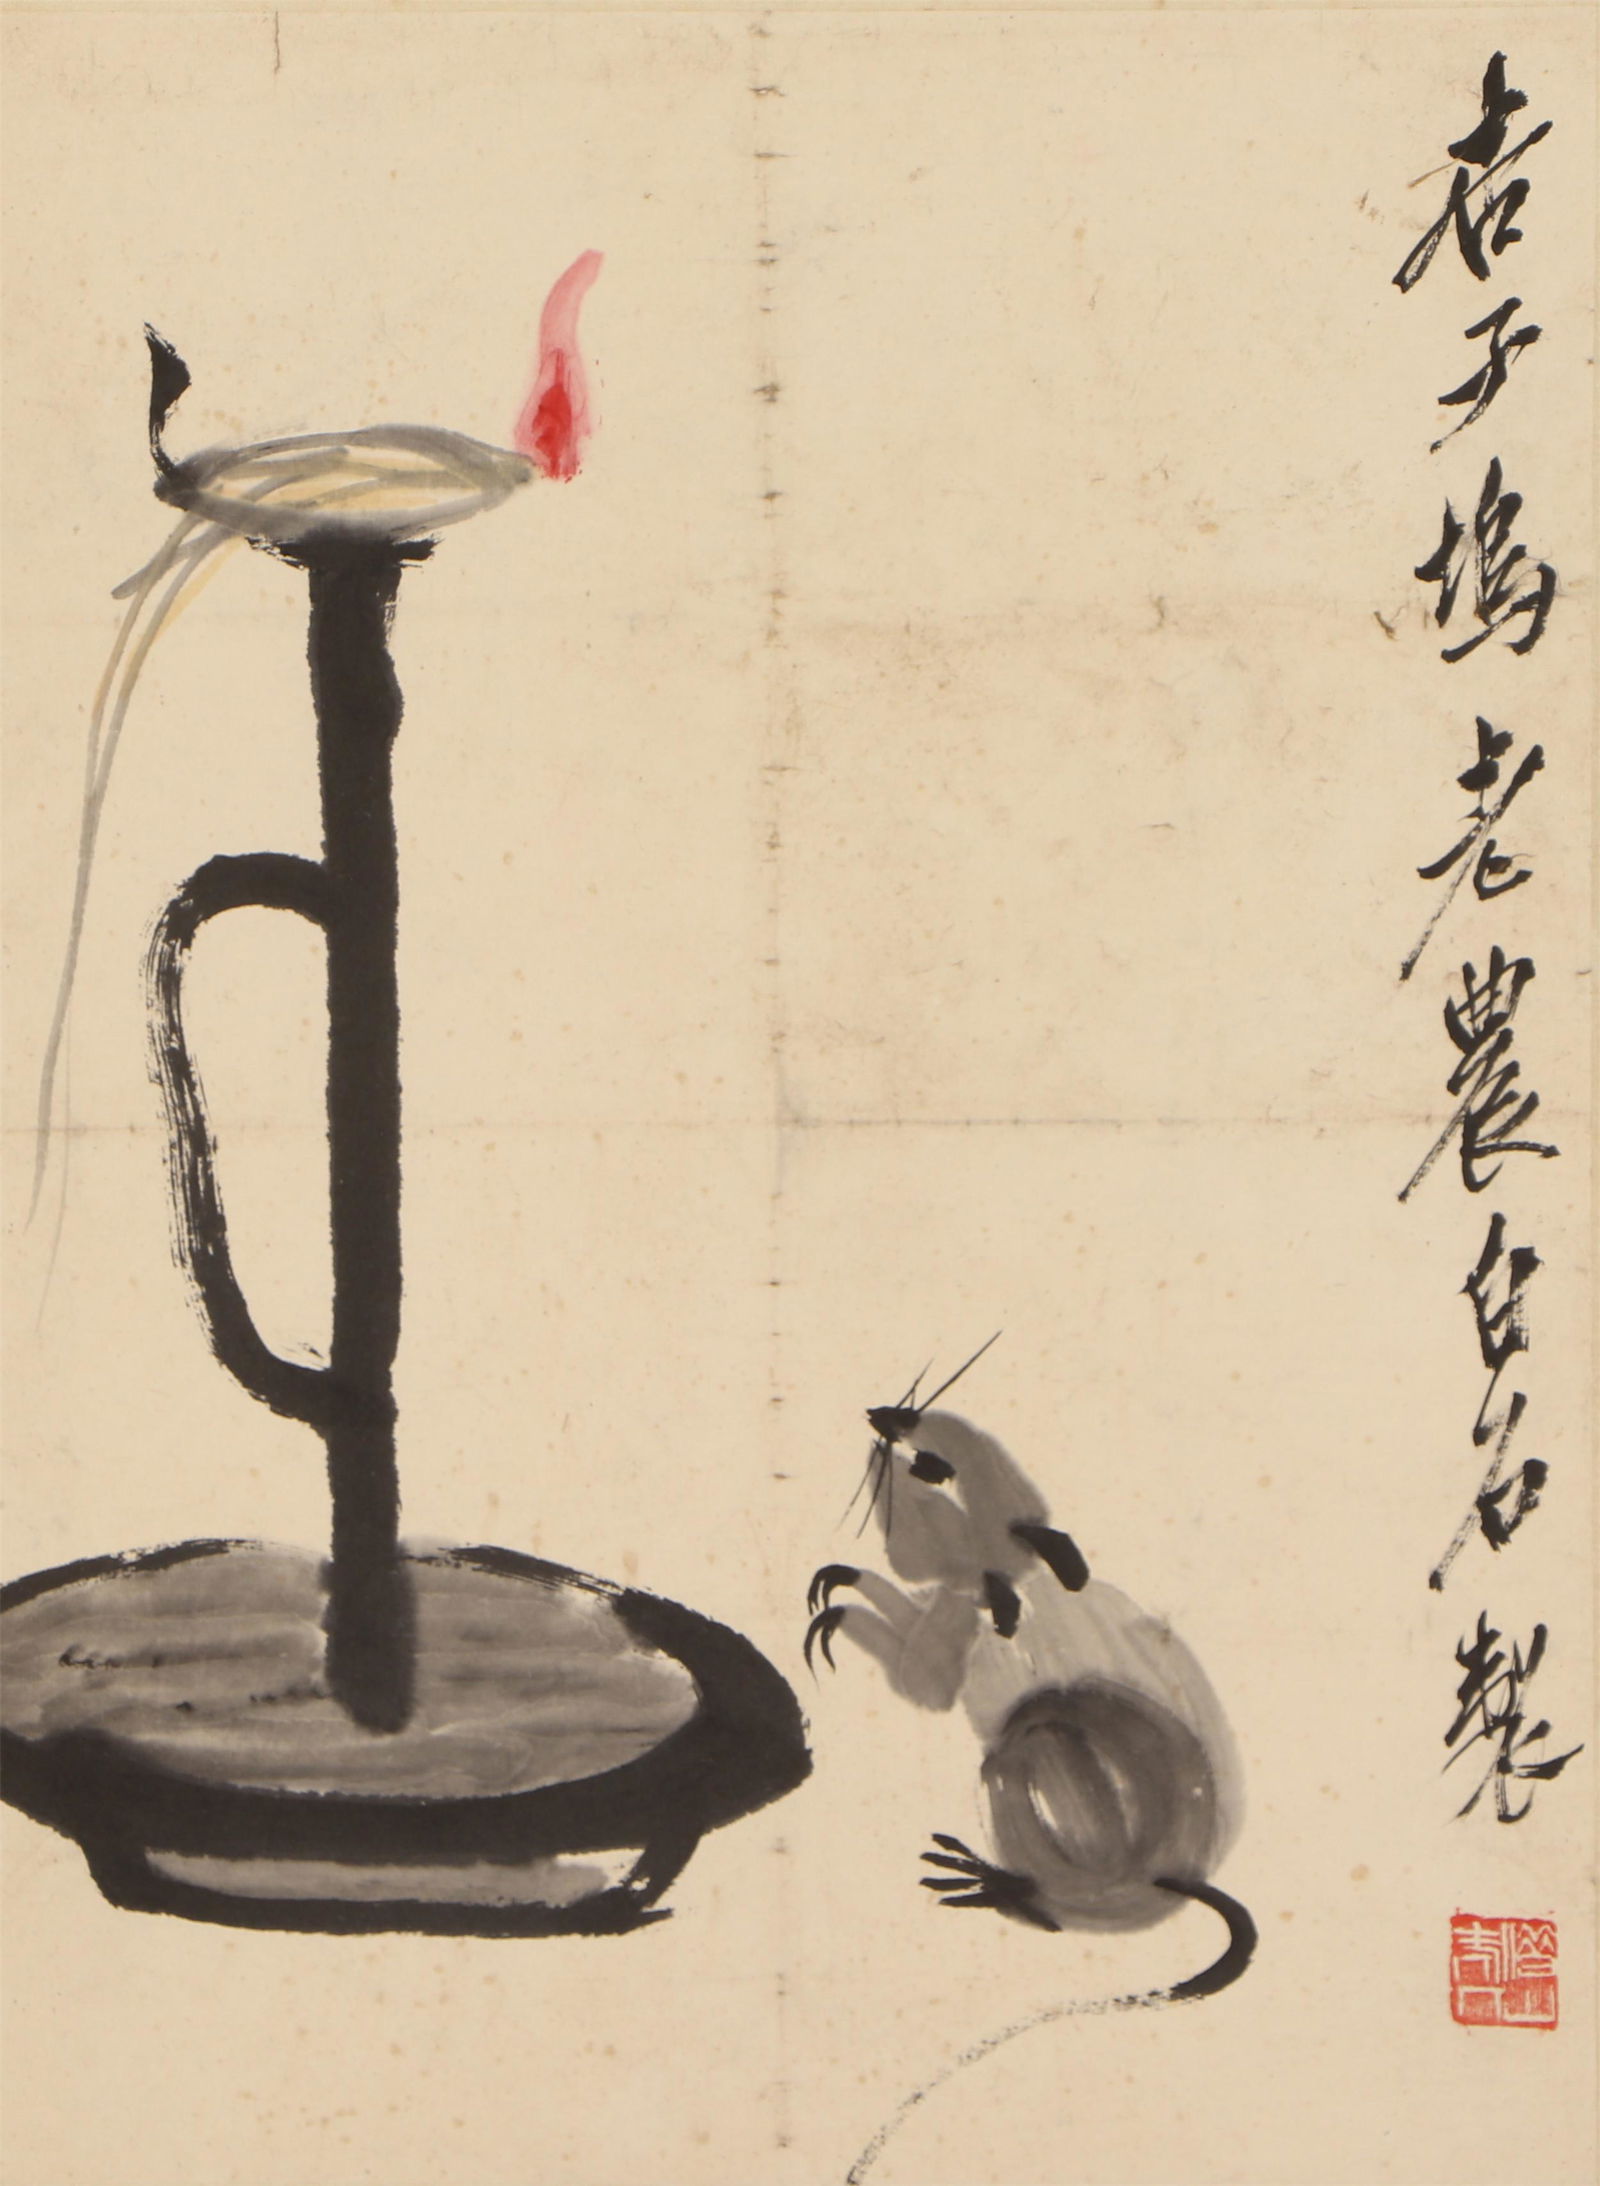 杏子塢老農白石製